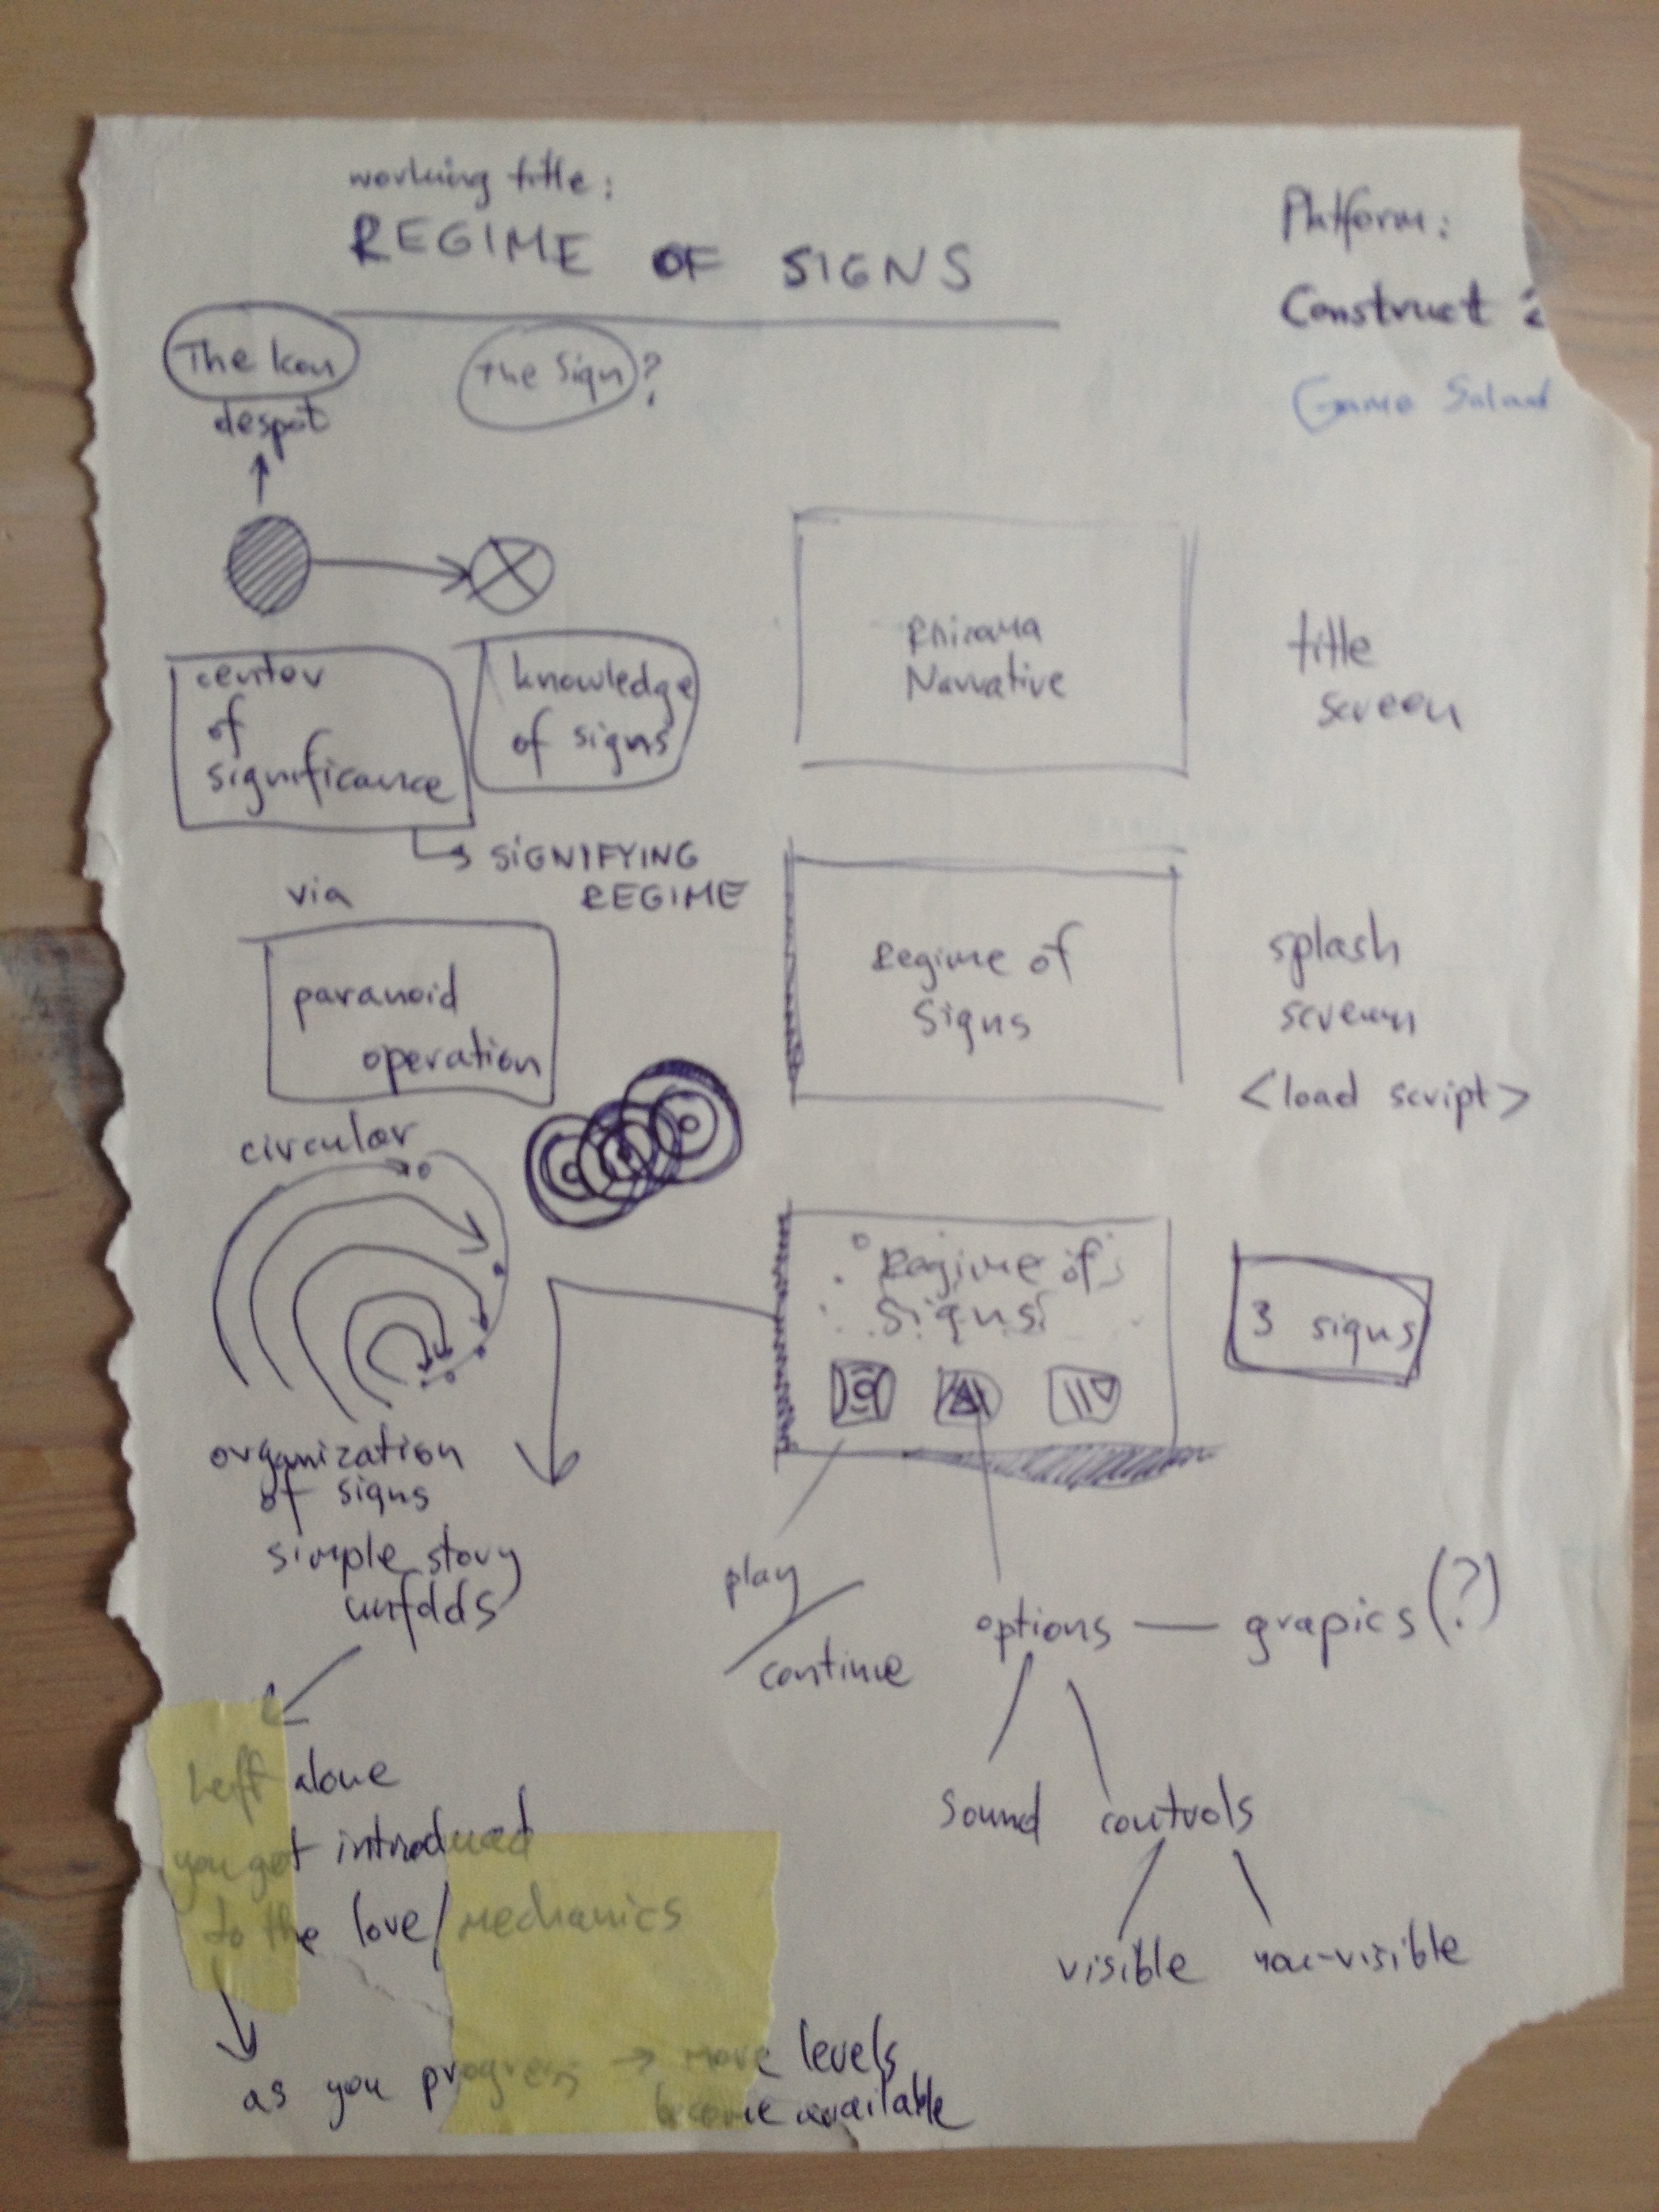 working title:
REGIME OF SIGNS
Platform:
Construct 2
Game Salad
The Icon
despot
The Sign?
center
of
significance
knowledge
of signs
SIGNIFYING
REGIME
via
paranoid
operation
circular
organization
of signs
simple story
unfolds
Left alone
you get introduced
to the lore/mechanics
as you progress → more levels
become available
Narrative
title
screen
Regime of
Signs
splash
screen
<load script>
Regime of
Signs
3 signs
play
continue
options — grapics (?)
sound controls
visible non-visible